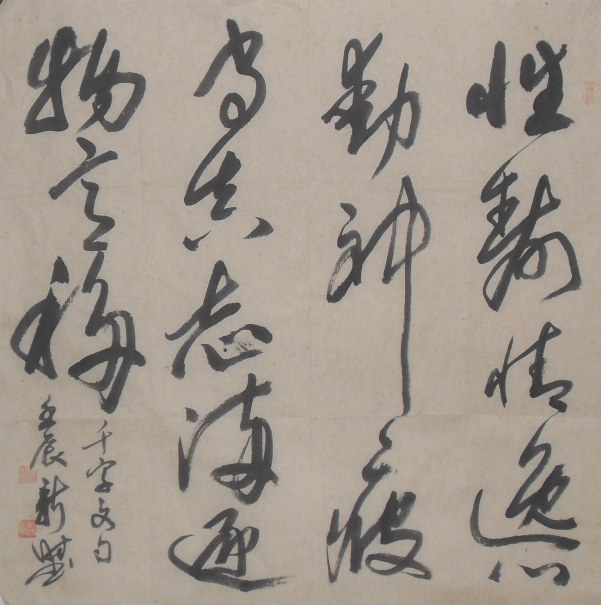 性靜情逸心
動神疲
守真志滿逐
物意移
千字文句
壬辰新